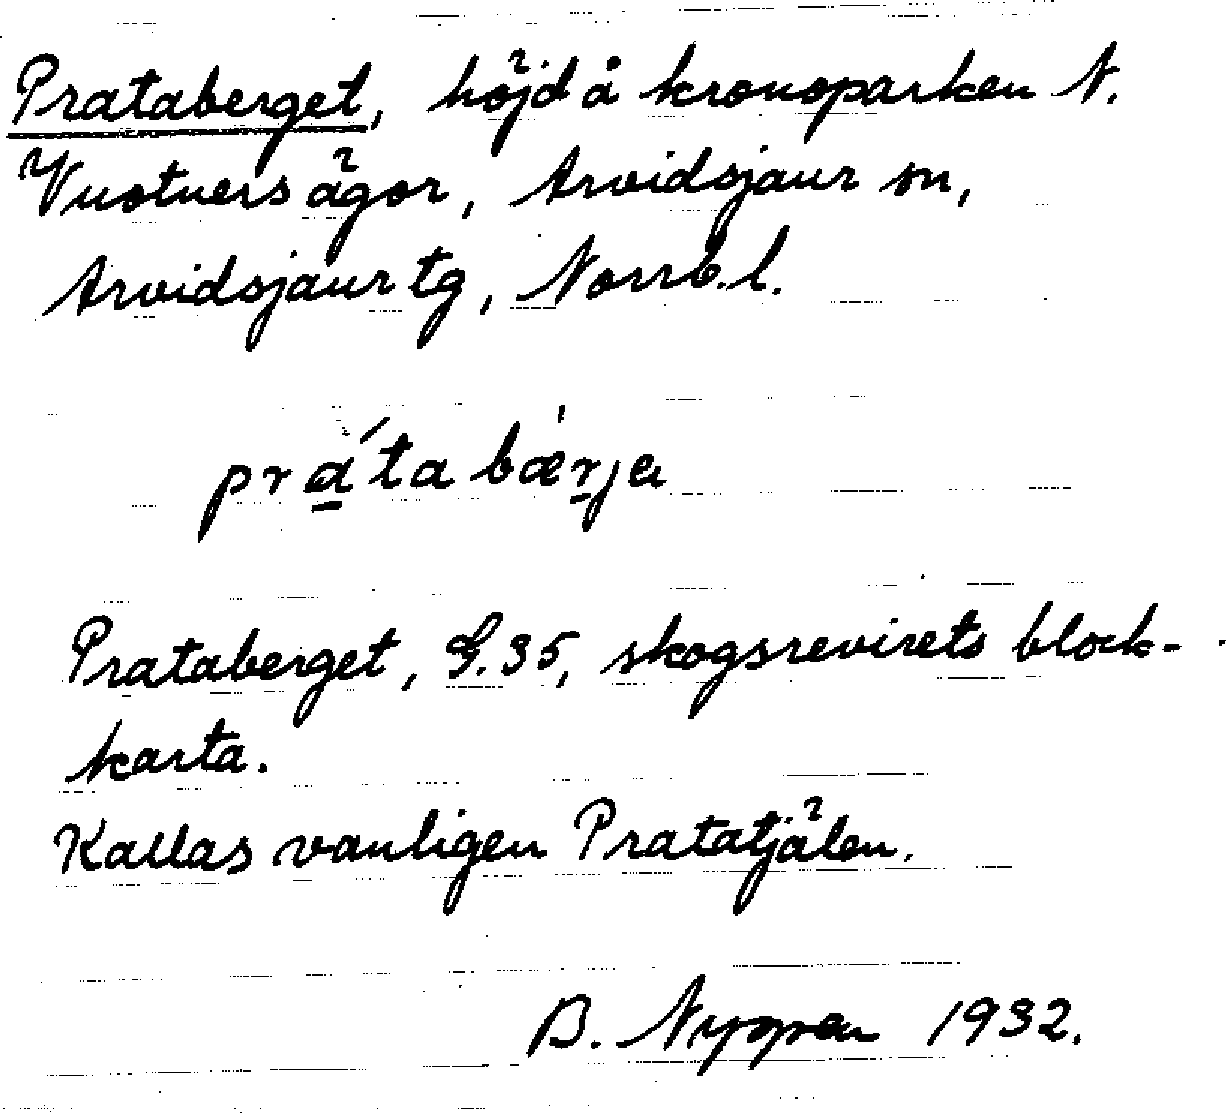 Prataberget, höjd å kronoparken N.
Vuotners ägor, Arvidsjaur sn,
Arvidsjaur tg, Norrb. l.
prata bærja
Prataberget, G. 35, skogsrevirets block-
karta.
Kallas vanligen Pratatjälen.
B. 1932.